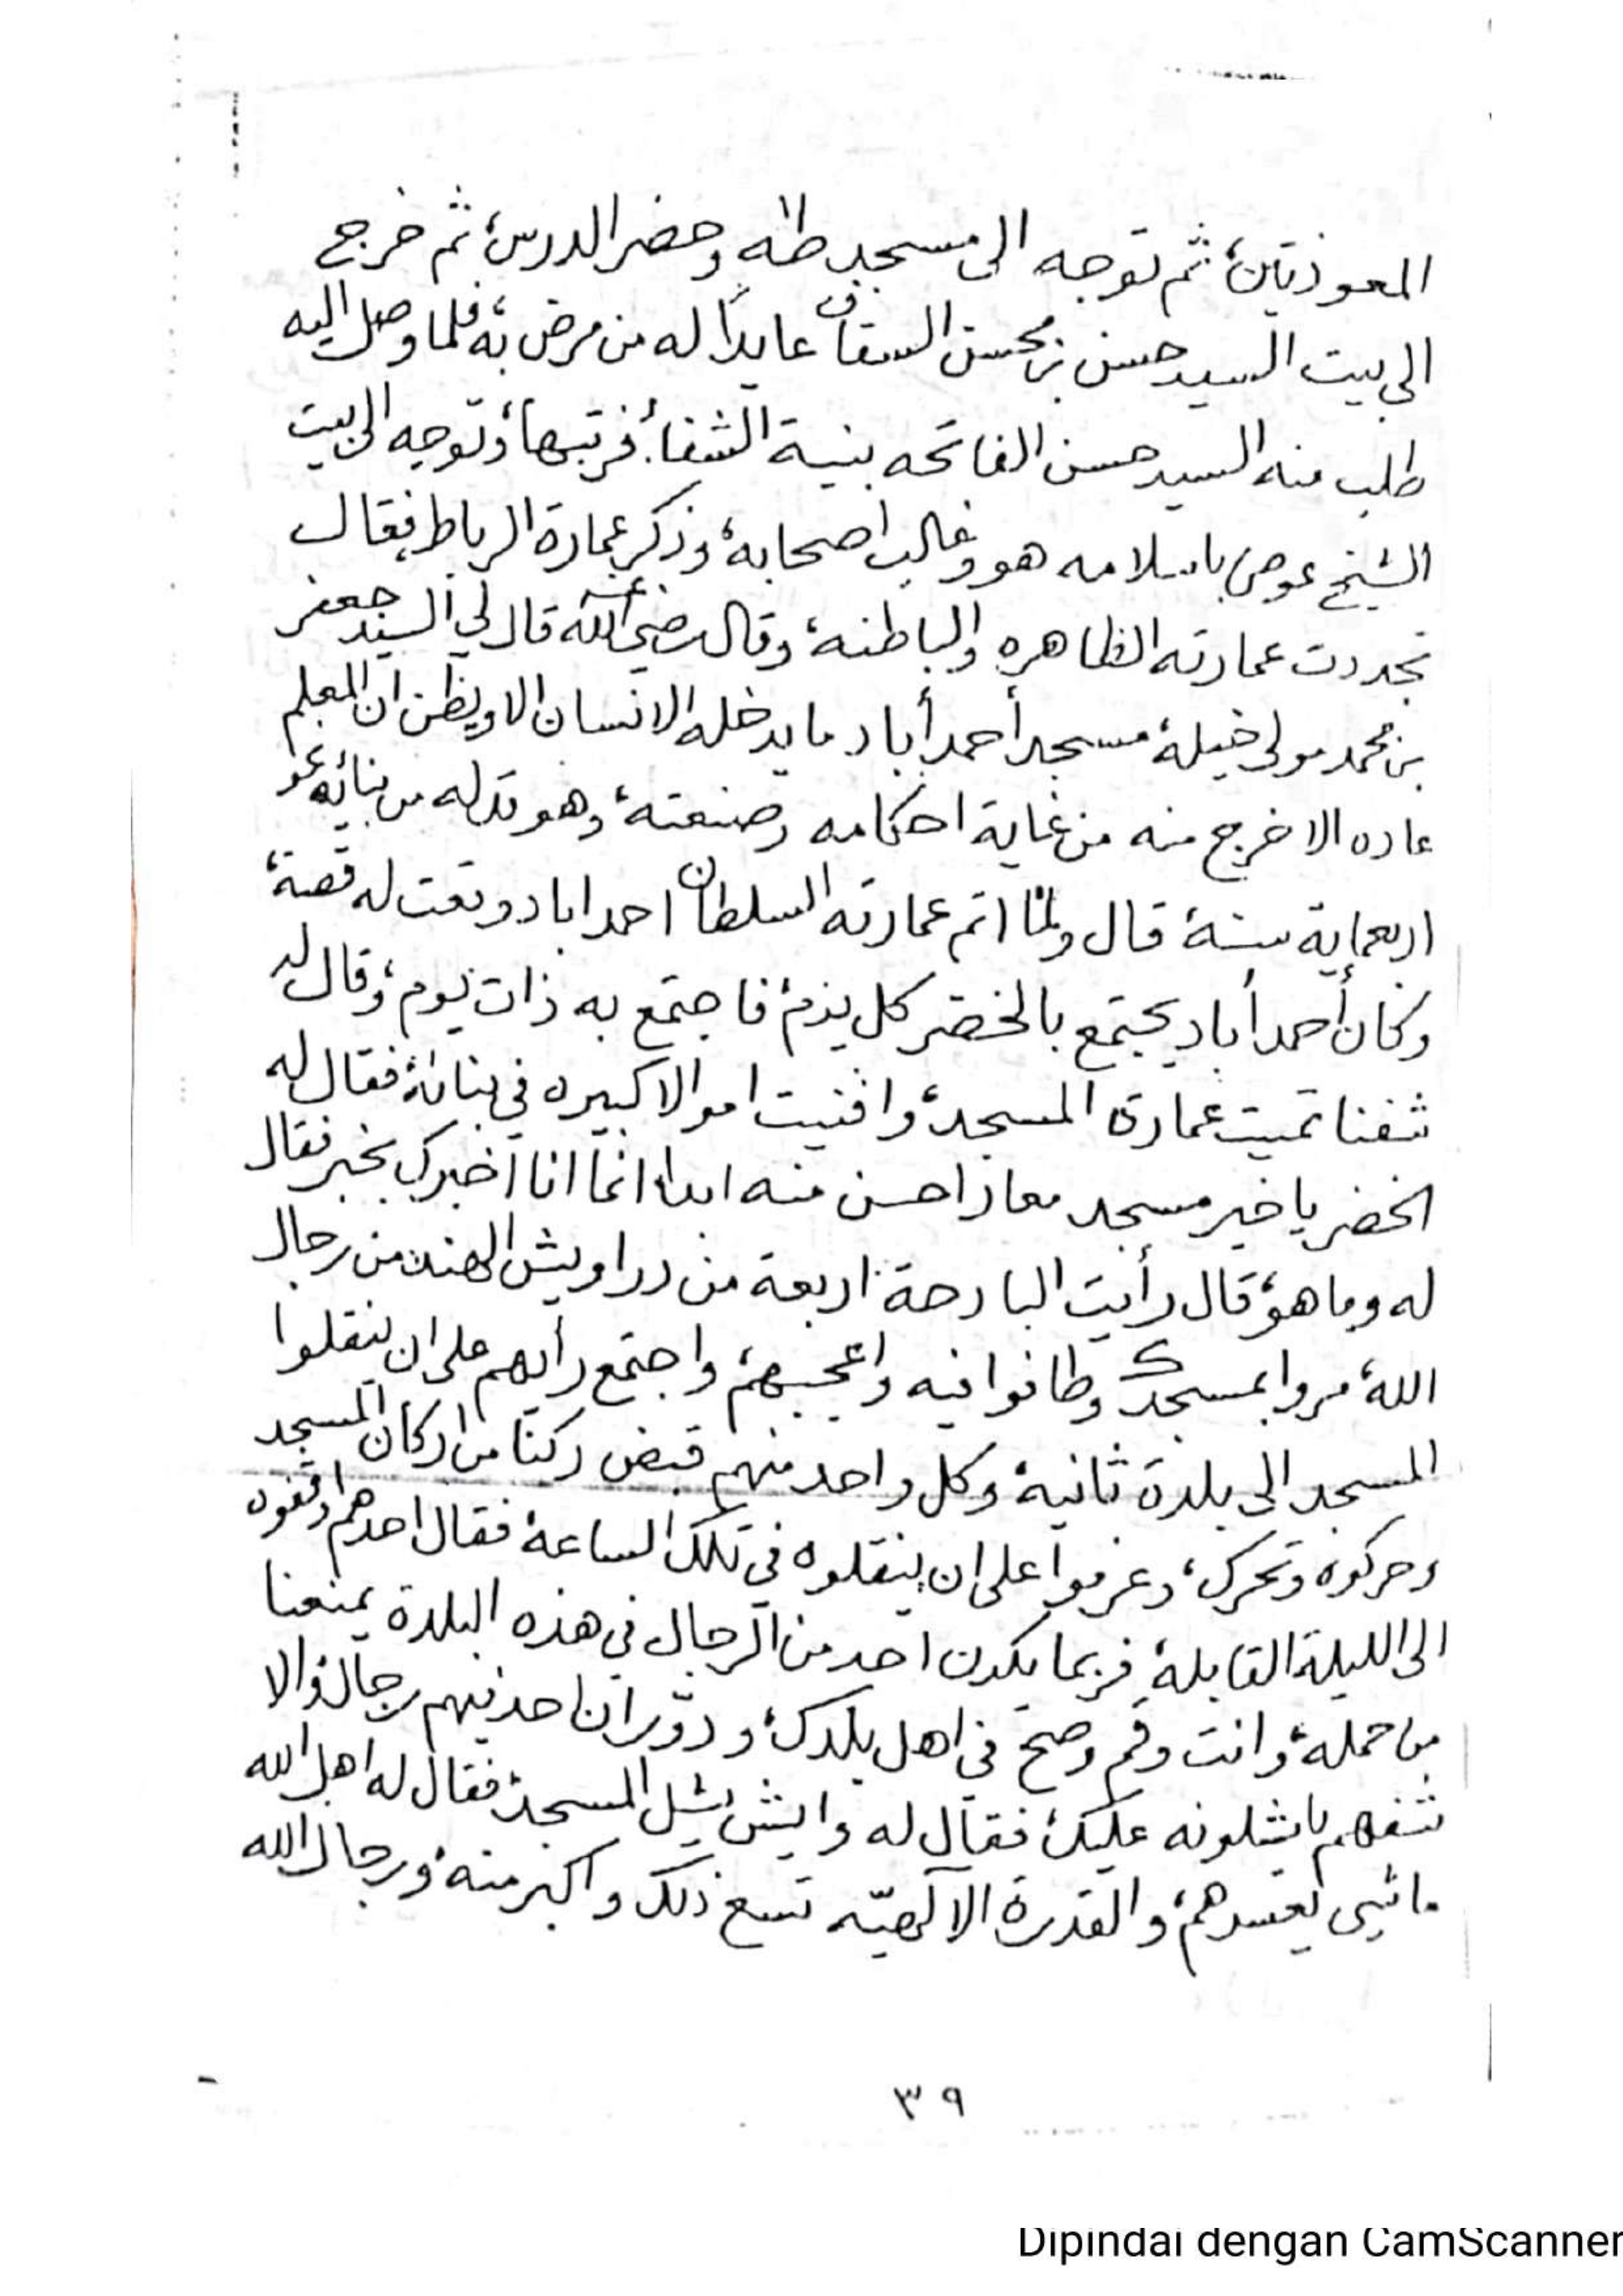 المعوذتين، ثم توجه الى مسجد طه وحضر الدرس، ثم خرج
الى بيت السيد حسن بن محسن السقاف عايدًا له من مرض به، فلما وصل اليه
طلب منه السيد حسن الفاتحه بنية الشفاء، فرتبها، وتوجه الى بيت
الشيخ عوض باسلامه هو وغالب اصحابه، وذكر عمارة الرباط، فقال
تجددت عمارته الظاهره والباطنه، وقال رضي الله عنه قال لي السيد جعفر
بن محمد مولى خيلة، مسجد أحمد أباد ما يدخله الانسان الا ويظن ان المعلم
عاده الا خرج منه من غاية احكامه وصنعته، وهو قد له من بنائه نحو
اربعماية سنة، قال ولما اتم عمارته السلطان احمد اباد وقعت له قصة،
وكان أحمد أباد يجتمع بالخضر كل يوم، فاجتمع به ذات يوم، وقال له
شفنا تميت عمارة المسجد، وافنيت اموالا كبيره في بنائه، فقال له
الخضر يا خير مسجد معاد احسن منه ابدا، انما انا اخبرك بخبر فقال
له وما هو، قال رأيت البارحة اربعة من دراويش الهند من رجال
الله، مروا بمسجدك وطافوا فيه واعجبهم، واجتمع رأيهم على ان ينقلوا
المسجد الى بلدة ثانية، وكل واحد منهم قبض ركنا من اركان المسجد
وحركوه وتحرك، وعزموا على ان ينقلوه في تلك الساعة، فقال احدهم اوقفوه
الى الليلة القابلة، فربما يكون احد من الرجال في هذه البلدة يمنعنا
من حمله، وانت وقم وصح في اهل بلدك، ودوّر ان احد فيهم رجال، والا
شفهم باشلونه عليك، فقال له وايش يشل المسجد، فقال له اهل الله
ما شي يعسرهم، والقدرة الالهيّه تسع ذلك واكبر منه، ورجال الله
٣٩
Dipindai dengan CamScanner